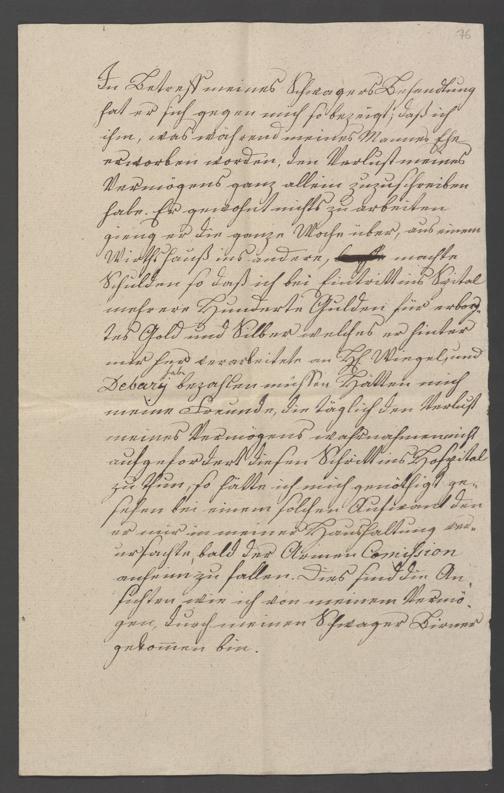 76
In Betreff meines Schwagers Behandlung
hat er sich gegen mich so bezeugt; daß ich
ihm, was während meines Mannes Ehe
erworben worden, den Verlust meines
Vermögens ganz allein zuzuschreiben
habe. Er gewohnt nichts zu arbeiten
gieng er die ganze Woche über, aus einem
Wirthshauß ins andere, machte
Schulden so daß ich bei Eintritt ins Spital
mehrere Hunderte Gulden für erborg-
tes Gold und Silber welches er hinter
mir her verarbeitete an H. Wiegel, und
Debary habe bezahlen müssen Hätten mich
meine Freunde, die täglich den Verlust
meines Vermögens wahrnahmen nicht
aufgefordert diesen Schritt ins Hospital
zu thun, so hätte ich mich genöthigt ge-
sehen bei einem solchen Aufwand den
er mir in meiner Haushaltung ver-
ursachte, bald der Armen Comission
anheim zu fallen. Dies sind die An-
sichten wie ich von meinem Vermö-
gen, durch meinen Schwager Birner
gekommen bin.